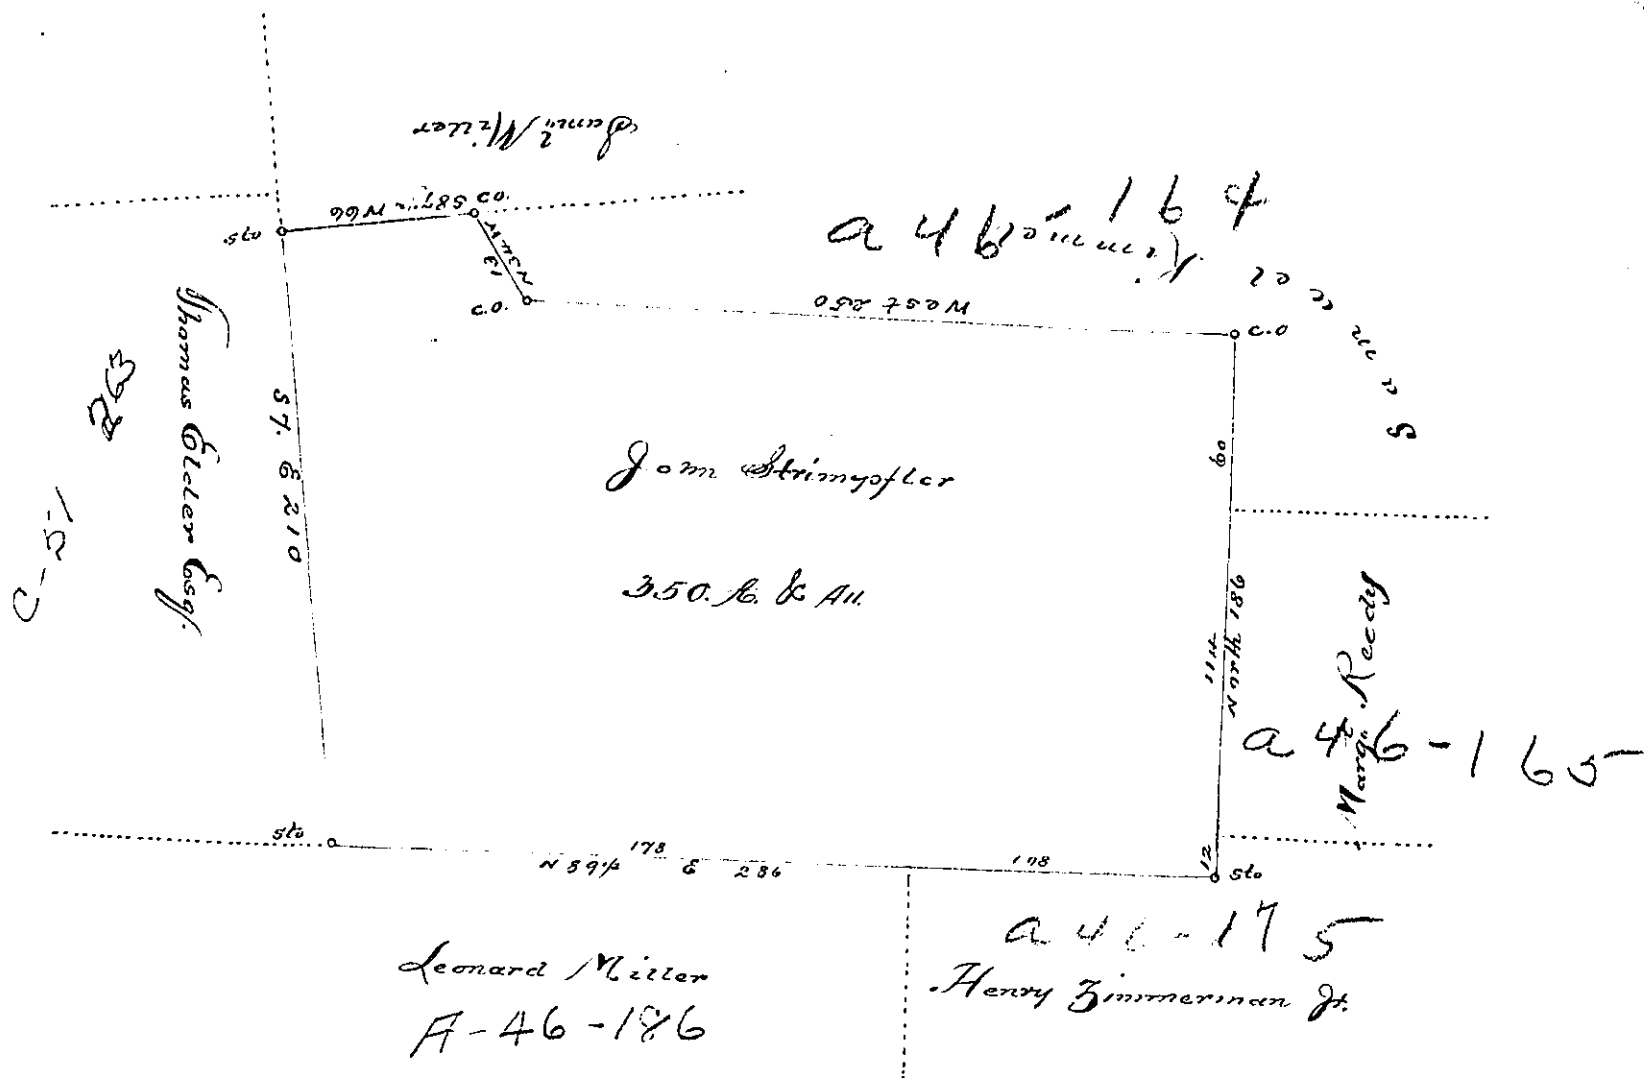 Sam'l Miller
S 87½ W 66
C.O.
sto
N 34 W
13
C.O.
West 250
C.O
a 46 - 164
Samuel Kimmel
60
Thomas Elder Esqr.
S 7. E 210
C-51
263
John Strimpfler
350. A. & All.
114
North 186
Marg't Reedy
a 46-165
sto
N 89½ E 286
178
108
12
sto
Leonard Miller
A-46-186
a 46-175
Henry Zimmerman Jr.